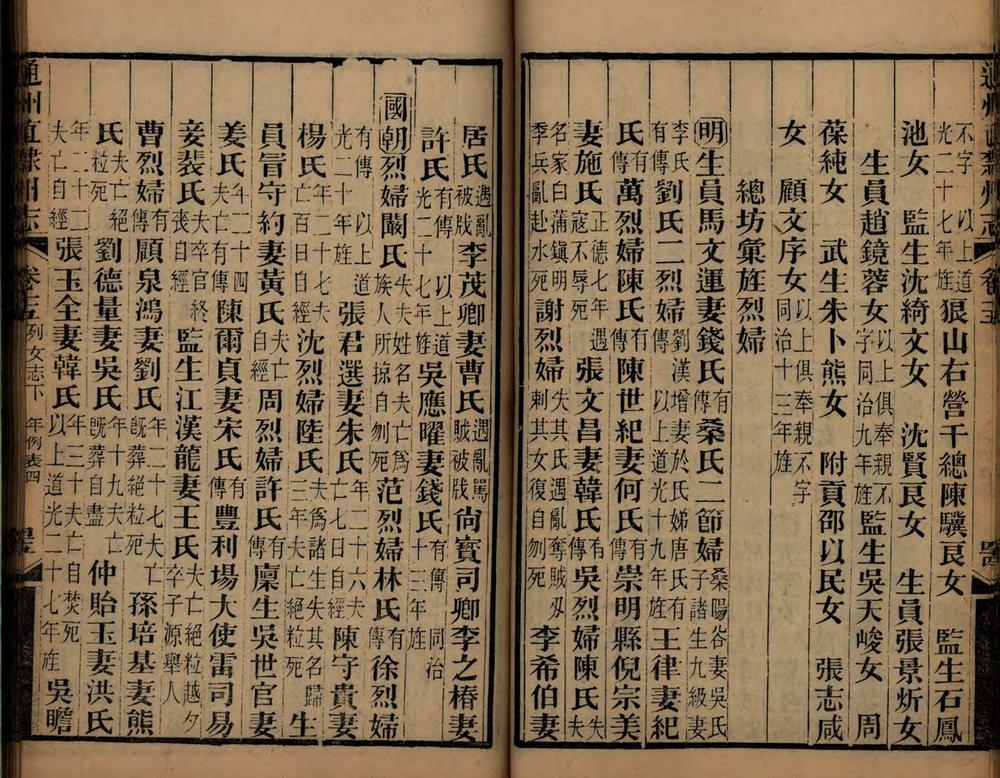 不字以上道光二十七年旌狼山右營千總陳驥良女　監生石鳳
池女　監生沈綺文女　沈賢良女　生員張景炘女
生員趙鏡蓉女以上俱奉親不字同治九年旌監生吳天峻女　周
葆純女　武生朱卜熊女　附貢邵以民女　張志咸
女　顧文序女以上俱奉親不字同治十三年旌
總坊彙旌烈婦
明生員馬文運妻錢氏有傳桑氏二節婦桑陽谷妻吳氏子諸生九級妻
李氏有傳劉氏二烈婦劉漢增妻於氏姊唐氏有傳以上道光十九年旌王律妻紀
氏有傳萬烈婦陳氏有傳陳世紀妻何氏有傳崇明縣倪宗美
妻施氏正德七年遇寇不辱死張文昌妻韓氏有傳吳烈婦陳氏失夫
名家白蒲鎮明季兵亂赴水死謝烈婦失其氏遇亂奪賊刀刺其女復自刎死李希伯妻
居氏遇亂被戕李茂卿妻曹氏遇亂罵賊被戕尙寳司卿李之椿妻
許氏有傳以上道光二十七年旌吳應曜妻錢氏有傳同治十三年旌
國朝烈婦嚴氏失夫姓名夫亡爲族人所掠自刎死范烈婦林氏有傳徐烈婦
有傳以上道光二十年旌張君選妻朱氏年二十六夫亡七日自經陳守貴妻
楊氏年二十夫亡百日自經沈烈婦陸氏夫爲諸生失其名歸三年夫亡絕粒死生
員冒守約妻黃氏夫亡自經周烈婦許氏有傳廩生吳世官妻
姜氏年二十四夫亡有傳陳爾貞妻宋氏有傳豐利場大使雷司易
妾裴氏夫卒官終喪自經監生江漢龍妻王氏夫亡絕粒越夕卒子源舉人
曹烈婦有傳顧泉鴻妻劉氏年二十七夫亡旣葬絕粒死孫培基妻熊
氏夫亡絕粒死劉德量妻吳氏年十九夫亡旣葬自盡仲貽玉妻洪氏
年二十二夫亡自經張玉全妻韓氏年三十夫亡自焚死以上道光二十七年旌吳瞻
通州直隸州志
卷十五
列女志下
年例表四